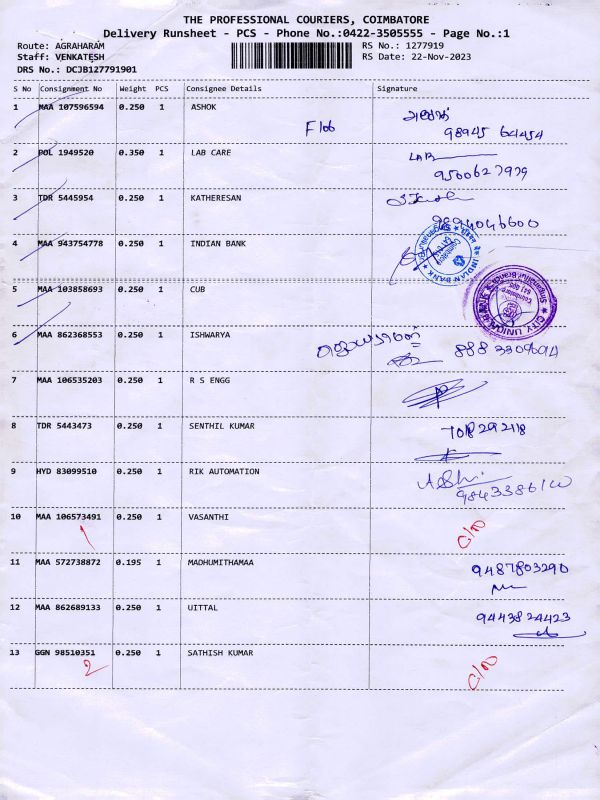 THE PROFESSIONAL COURIERS, COIMBATORE
Delivery Runsheet - PCS - Phone No.:0422-3505555 - Page No.:1
Route: AGRAHARAM RS No.: 1277919
Staff: VENKATESH RS Date: 22-Nov-2023
DRS No.: DCJB127791901
S No Consignment No Weight PCS Consignee Details Signature
1 MAA 107596594 0.250 1 ASHOK
F106
98945 64454
2 POL 1949520 0.350 1 LAB CARE LAB
9500627979
3 TDR 5445954 0.250 1 KATHERESAN
9894046600
4 MAA 943754778 0.250 1 INDIAN BANK
INDIAN BANK
5 MAA 103858693 0.250 1 CUB
CITY UNION
6 MAA 862368553 0.250 1 ISHWARYA
7 MAA 106535203 0.250 1 R S ENGG
8 TDR 5443473 0.250 1 SENTHIL KUMAR
9 HYD 83099510 0.250 1 RIK AUTOMATION
10 MAA 106573491 0.250 1 VASANTHI
1
11 MAA 572738872 0.195 1 MADHUMITHAMAA 9487803290
12 MAA 862689133 0.250 1 UITTAL 9443824423
13 GGN 98510351 0.250 1 SATHISH KUMAR
2